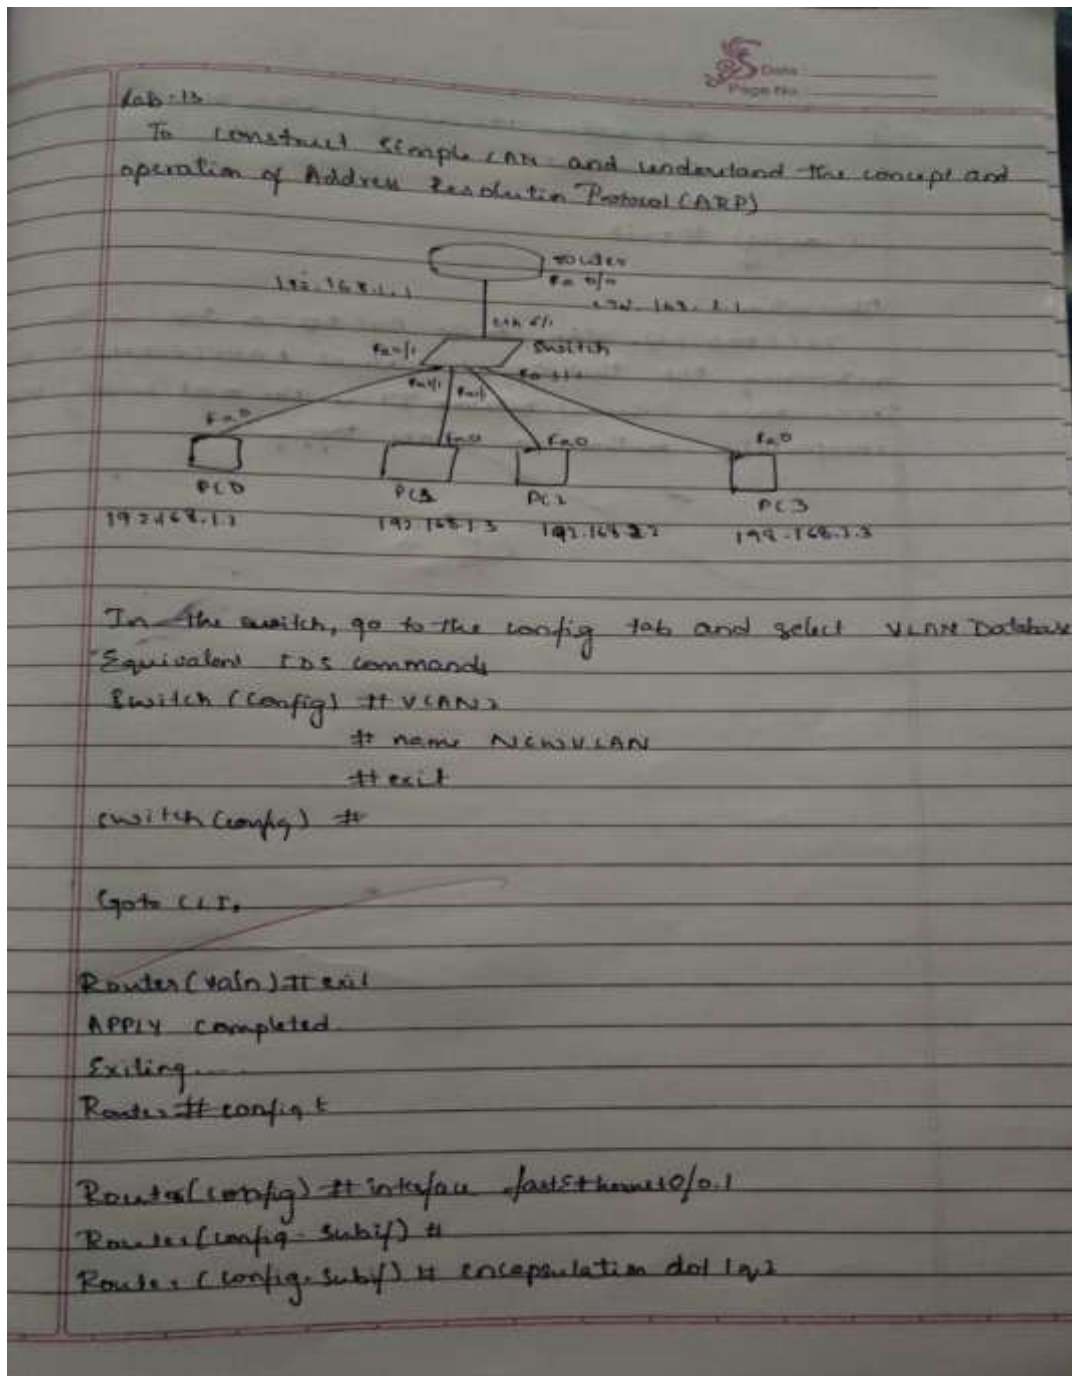 Date
Page No.
Lab-13
To construct simple LAN and understand the concept and
operation of Address Resolution Protocol (ARP)
router
Fa 0/0
192.168.1.1
192.168.2.1
Eth 6/1
Fa0/1
Switch
Fa1/1
Fa 0
Fa0
Fa,0
Fa,0
PC0
PC1
PC2
PC3
192.168.1.2
192.168.1.3
192.168.2.2
192.168.2.3
In the switch, go to the config tab and select VLAN Database
Equivalent IOS commands
Switch (config) # VLAN 2
# name NEWVLAN
# exit
switch (config) #
Goto CLI,
Router (valn) # exit
APPLY completed
Exiting.....
Router # config t
Router (config) # interface fastEthernet 0/0.1
Router (config-subif) #
Router (config-subif) # encapsulation dot1q 2